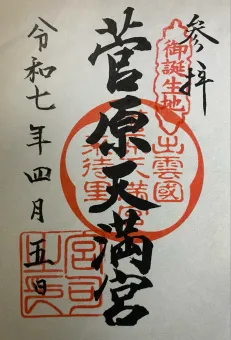 参拝
御誕生地
菅原天満宮
出雲國
令和七年四月五日